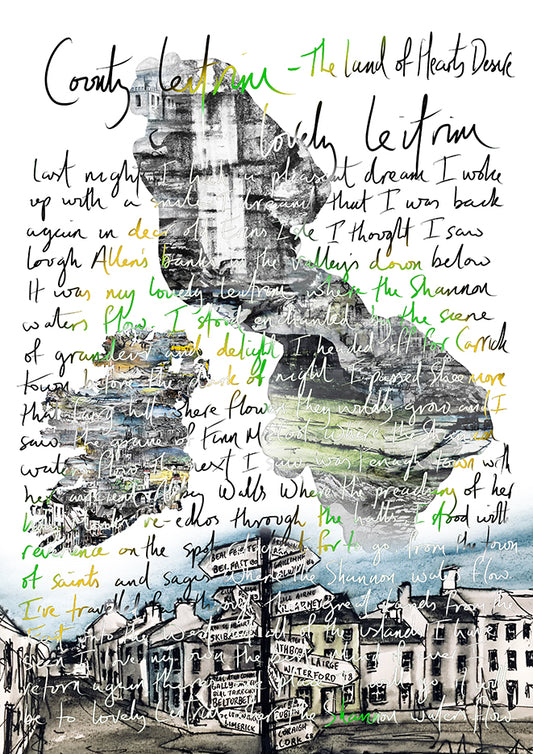 County Leitrim - The Land of Hearts Desire
Lovely Leitrim
Last night I had a pleasant dream I woke
up with a smile I dreamt that I was back
again in dear old Erins Isle I thought I saw
Lough Allen's banks in the valleys down below
It was my lovely Leitrim where the Shannon
waters flow. I stood enchanted by the scene
of grandeur and delight I headed off for Carrick
town before the dark of night I passed Sheemore
that fairy hill where flowers they wildly grow and I
saw the grave of Finn McCool where the Shannon
waters flow I next I saw was Fenagh town with
her ancient Abbey Walls Where the preaching of her
re-echos through the halls I stood with
reverence on the spot for to go from the town
of saints and sages where the Shannon waters flow
I've travelled far through the great lands from the
East unto the west all the islands I have
seen I love my own the best
return again
be to lovely Leitrim where the Shannon waters flow
BELFAST
KILLARNEY
PORT LAIRGE
WATERFORD 48
BELTURBET
LIMERICK
CORCAIGH
CORK